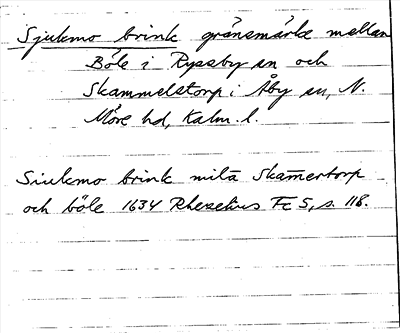 Sjukmo brink gränsmärke mellan
Böle i Ryssby sn och
Skammelstorp i Åby sn, N.
Möre hd, Kalm. l.
Siukmo brink millā Skam̄ertorp
och böle 1634 Rhezelius Fc 5, s. 118.